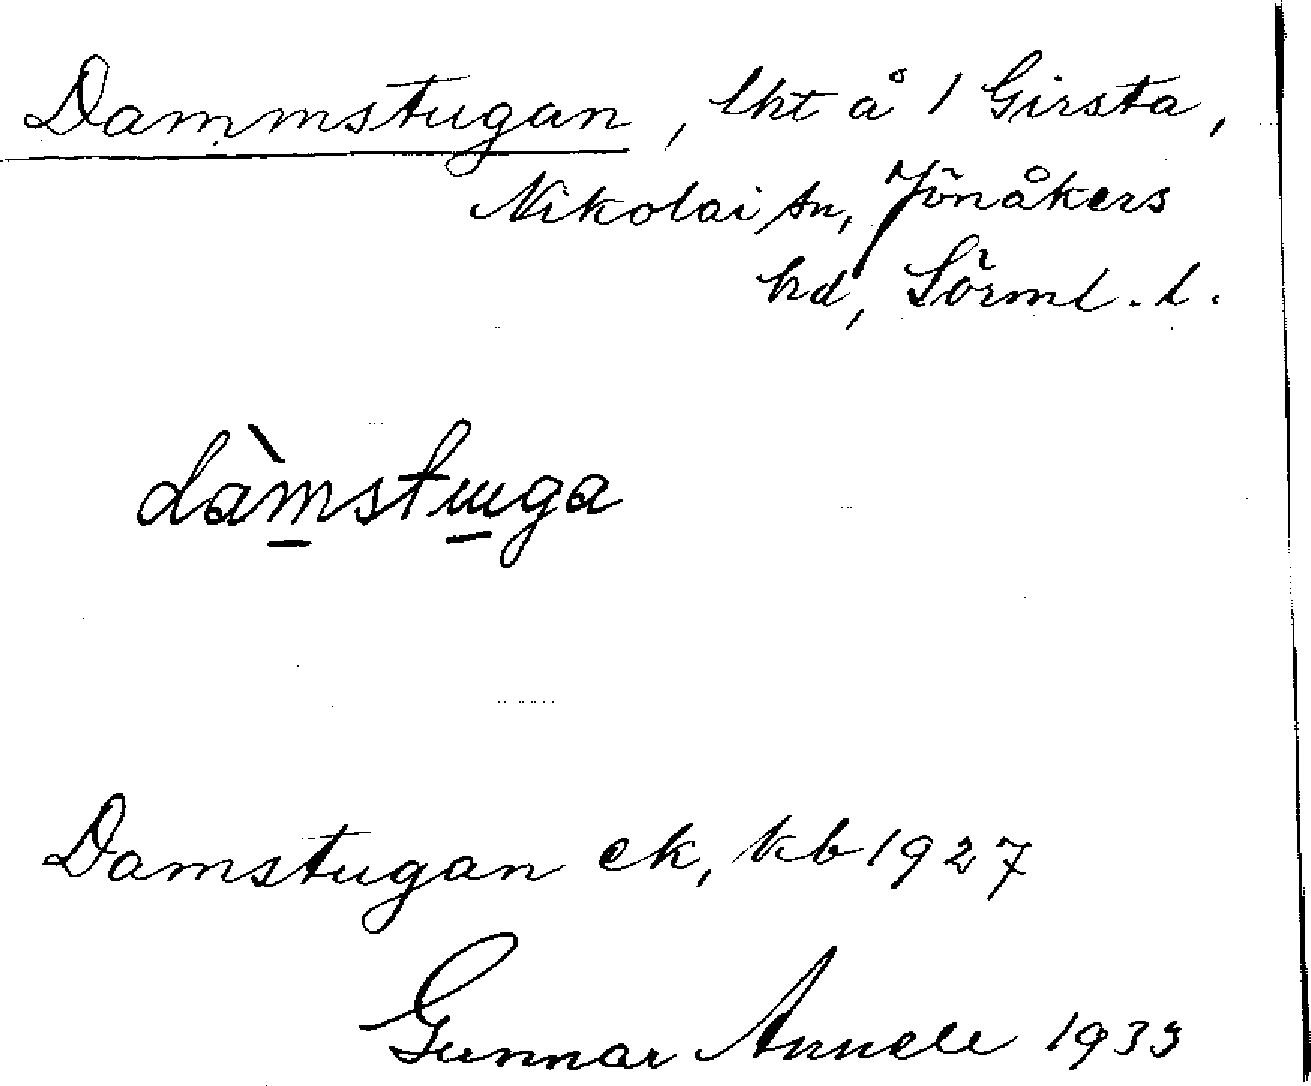 Dammstugan, lht å 1 Girsta,
Nikolai sn, Jönåkers
hd, Sörml. l.
dàmstuga
Damstugan ek, kb 1927
Gunnar Annell 1933